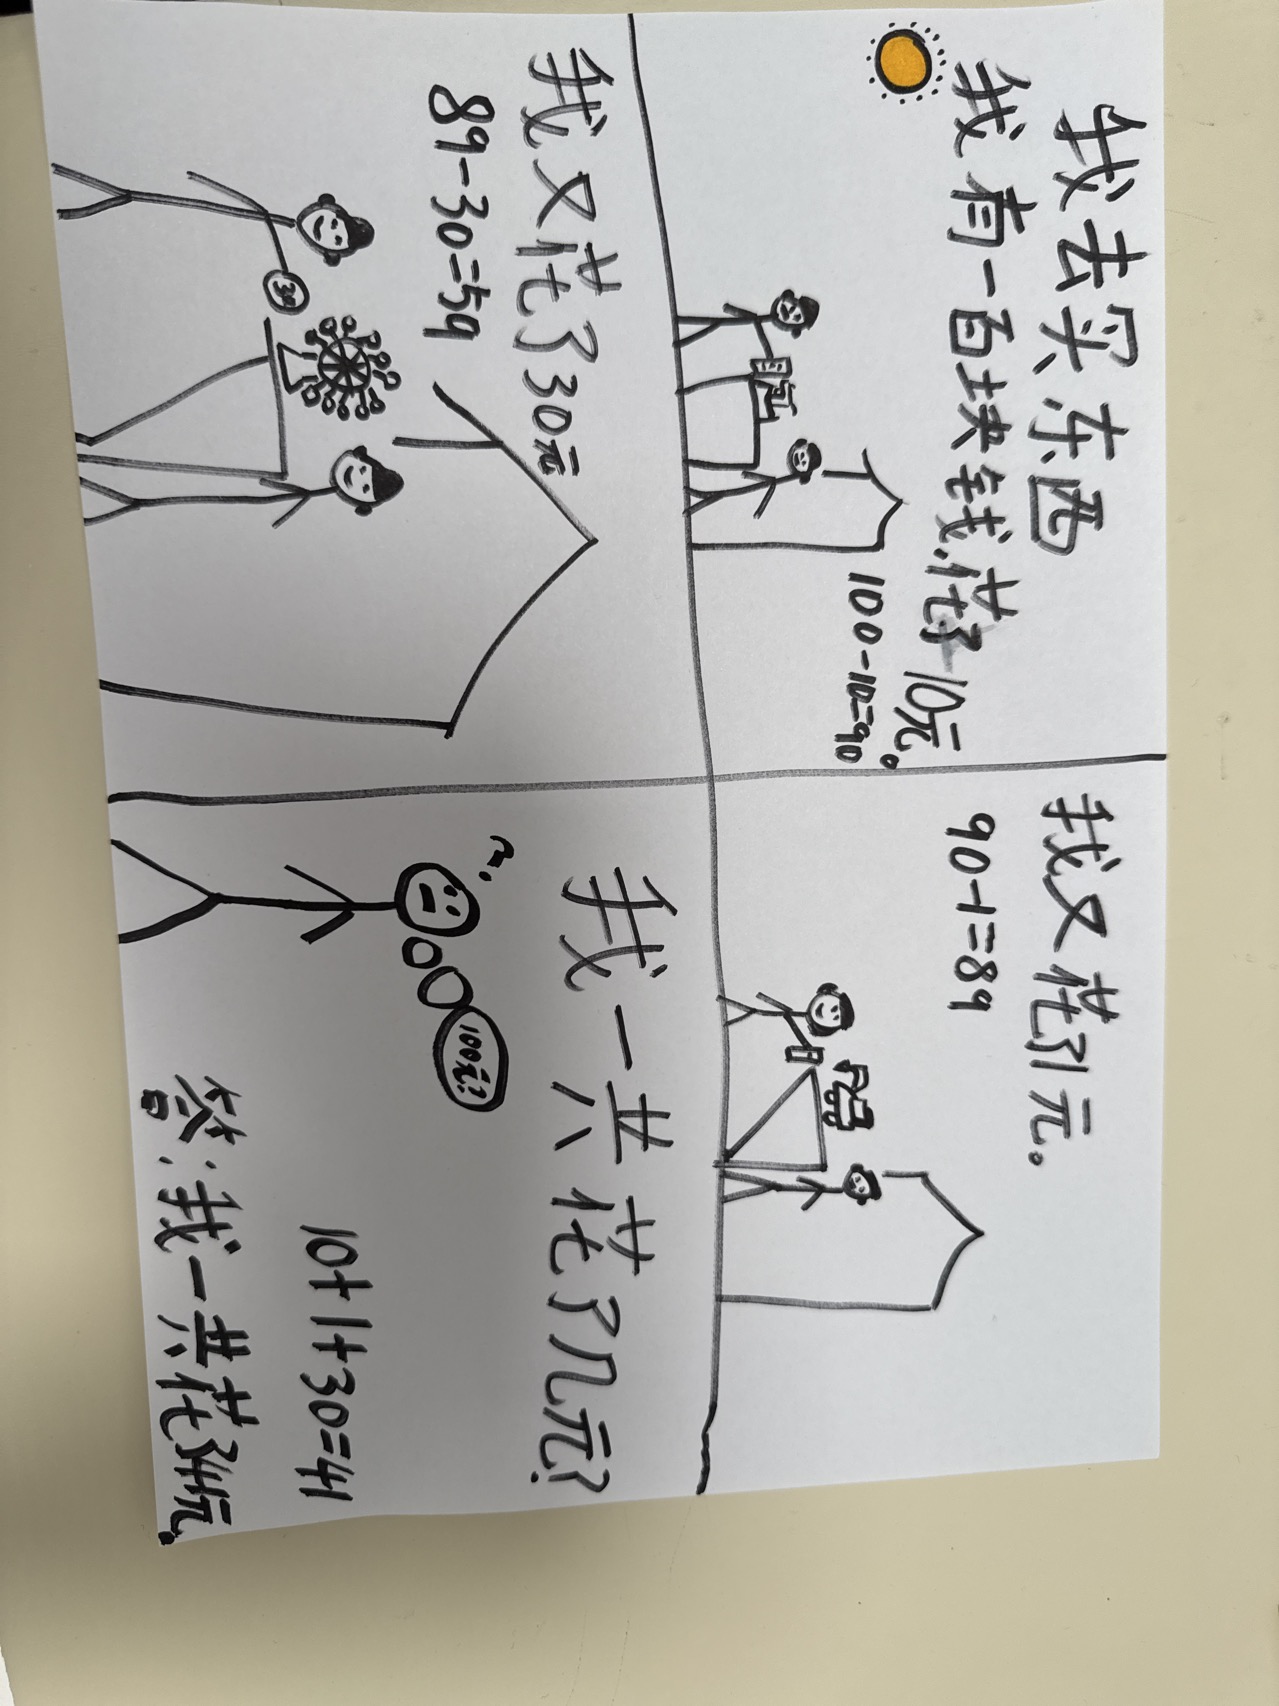 我去实东西
我有一百块钱,花了10元。
100-10=90
我又花了1元。
90-1=89
我又花了30元
89-30=59
30
我一共花了几元?
100元?
10+1+30=41
答:我一共花了41元.